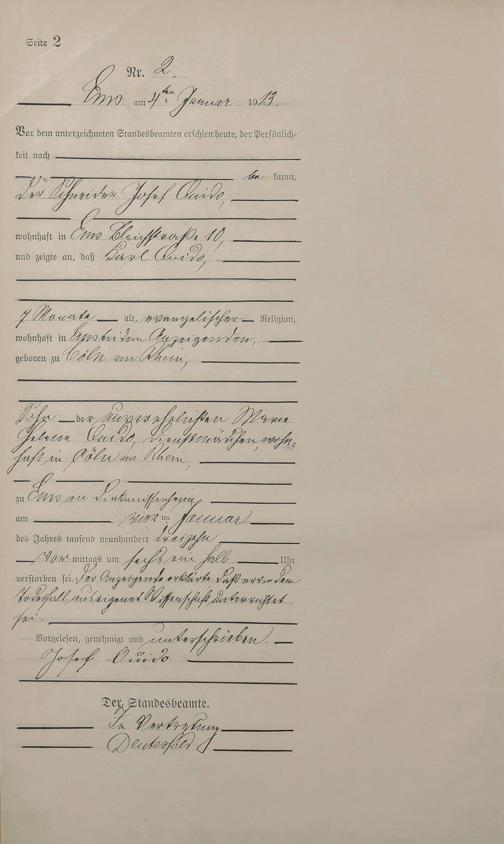 Seite 2
Nr. 2.
Ems am 4ten Januar 1913.
Vor dem unterzeichneten Standesbeamten erschien heute, der Persönlich-
keit nach
be kannt,
der Schneider Josef Quido,
wohnhaft in Ems Bleichstraße 10,
und zeigte an, daß Karl Quido,
7 Monate alt, evangelischer Religion,
wohnhaft in Ems bei dem Anzeigenden,
geboren zu Cöln am Rhein,
Sohn der unverehelichten Marie
Helene Quido, Dienstmädchen, wohn-
haft in Cöln am Rhein,
zu Ems, im Diakonissenheim
am vierten Januar
des Jahres tausend neunhundert dreizehn
Vor mittags um sechs ein halb Uhr
verstorben sei. Der Anzeigende erklärte daß er von dem
Todesfall aus eigener Wissenschaft unterrichtet
sei.
Vorgelesen, genehmigt und unterschrieben.
Josef Quido
Der Standesbeamte.
In Vertretung